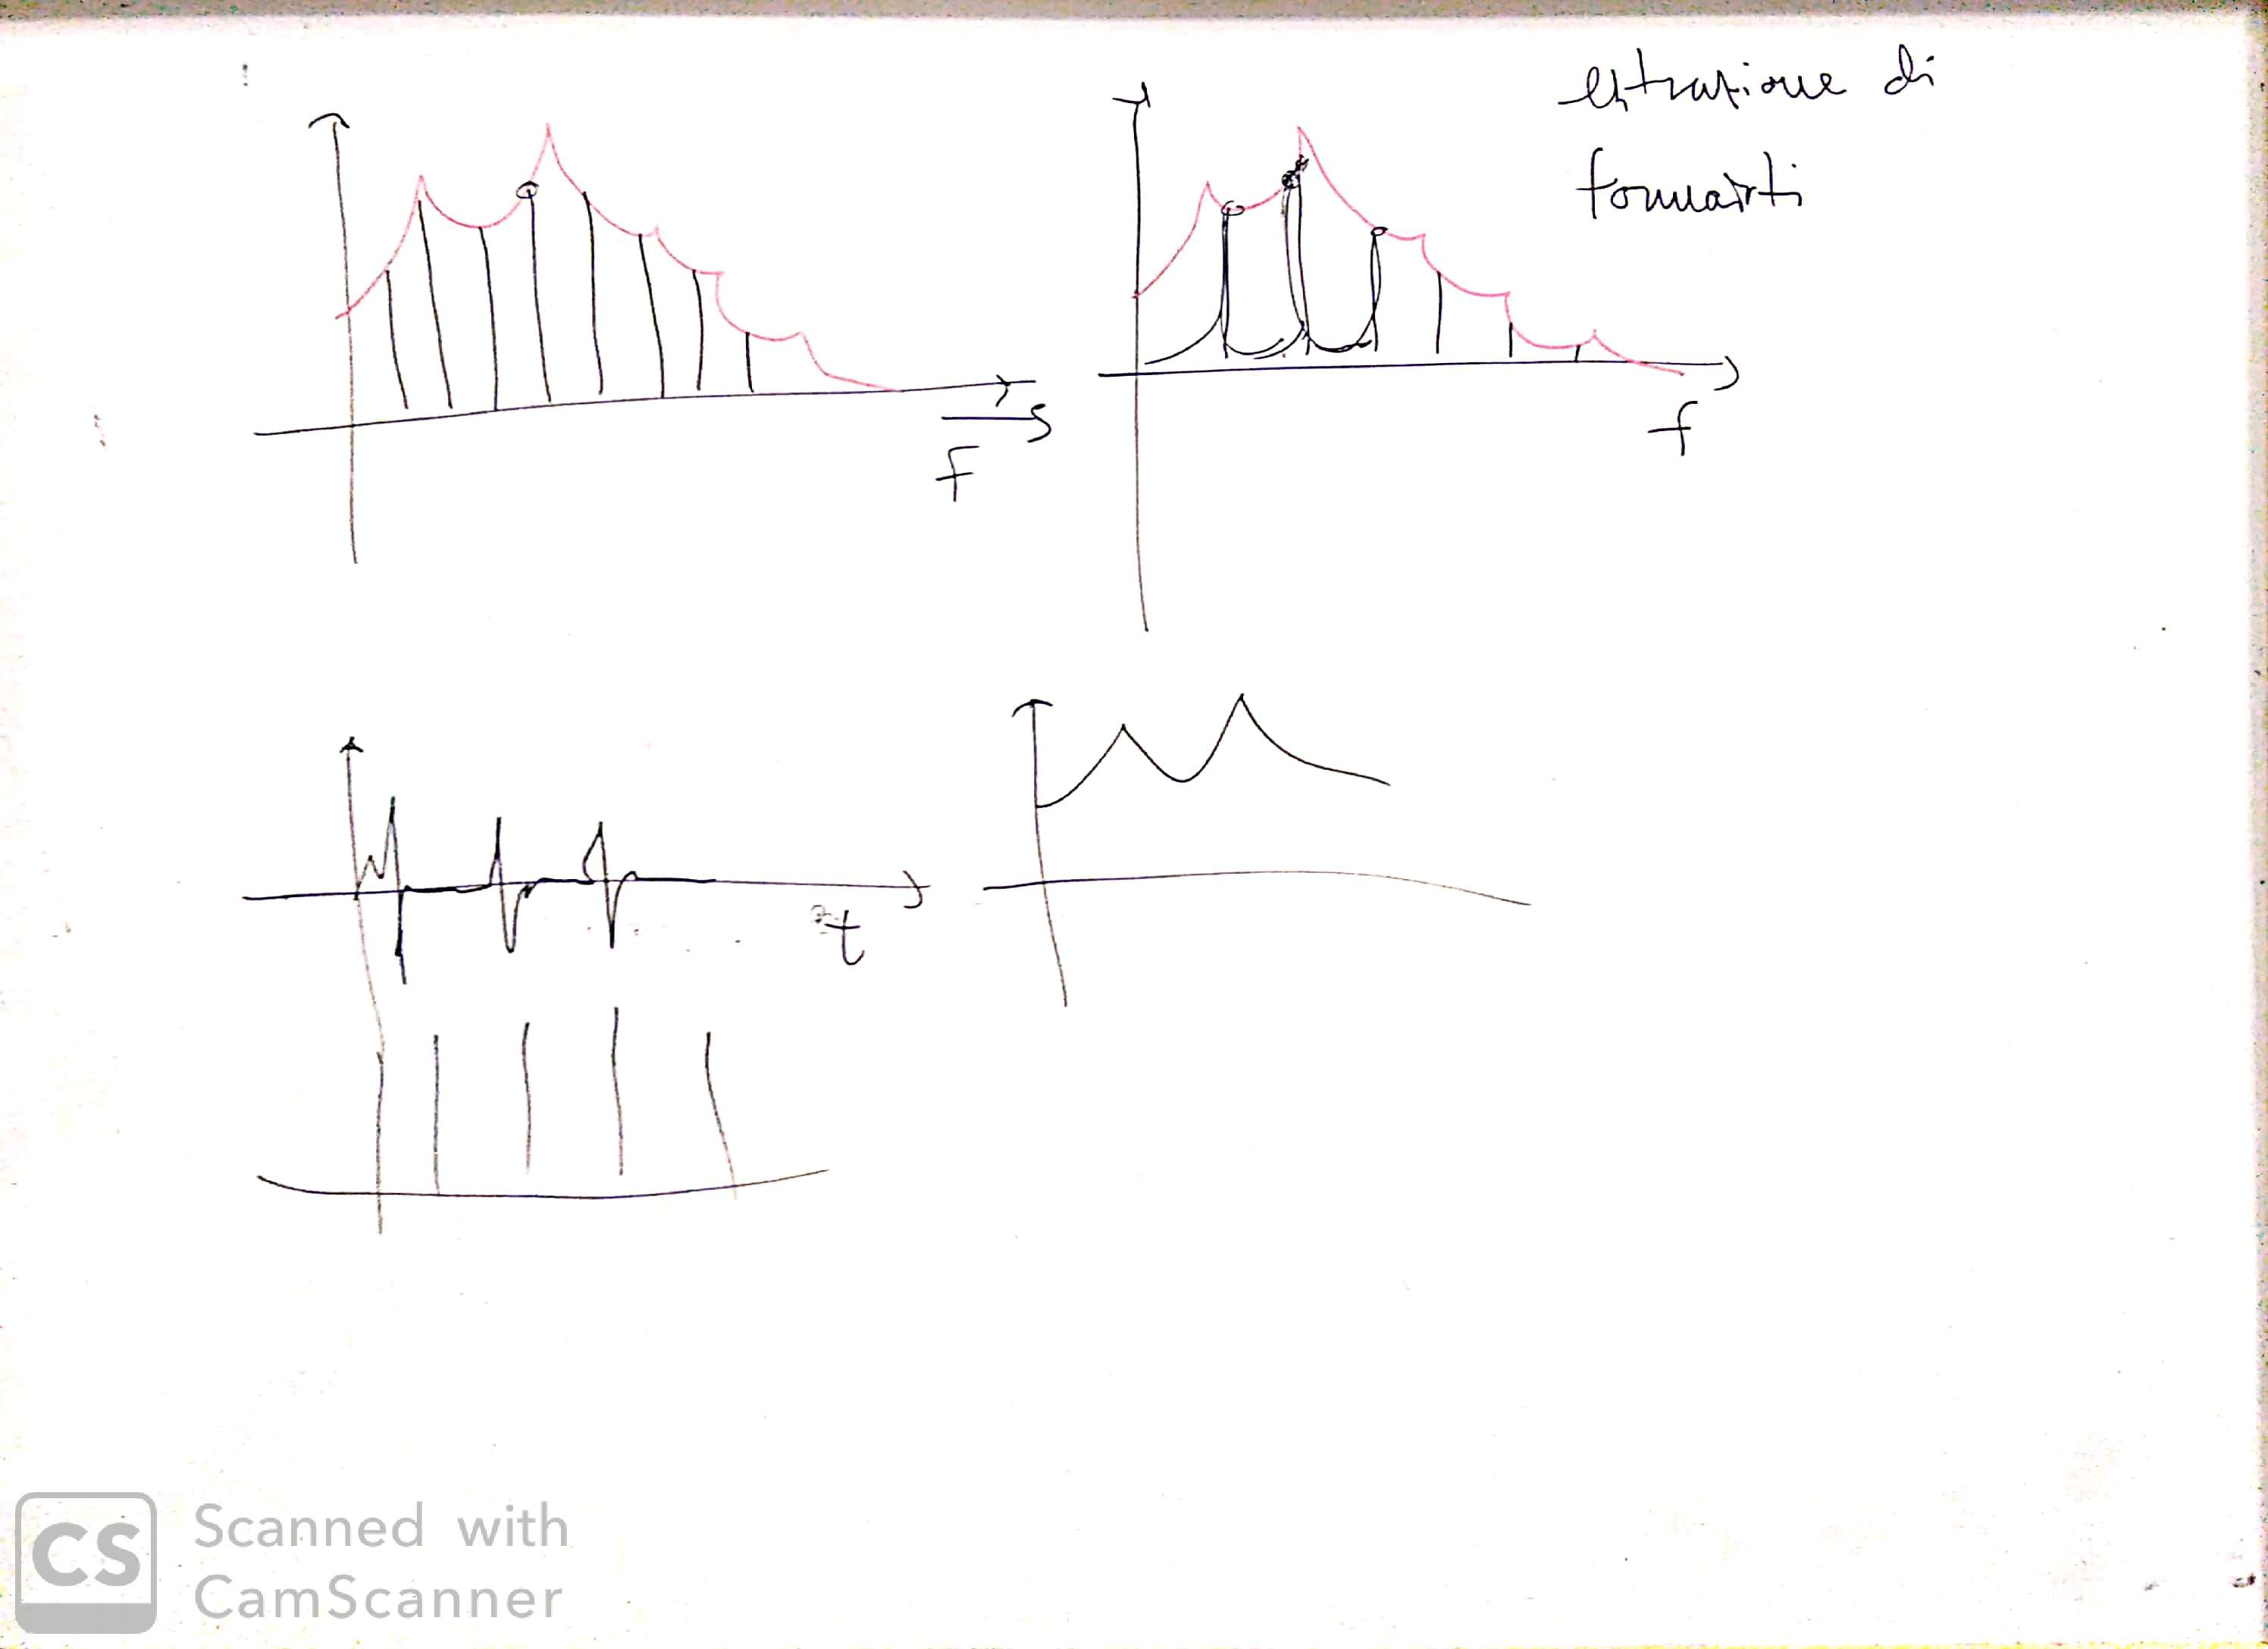 estrazione di
formanti
F
f
t
CS Scanned with
CamScanner